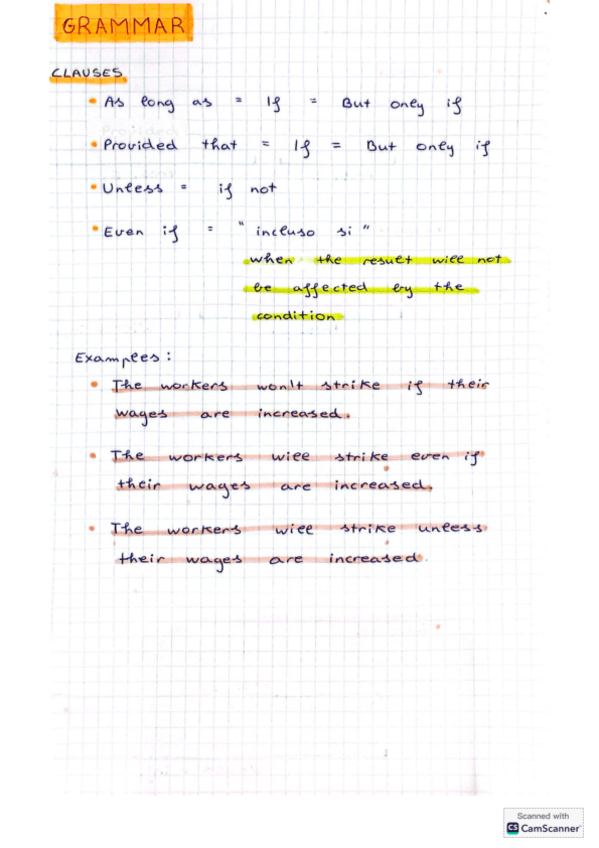 GRAMMAR
CLAUSES
• As long as = If = But only if
• Provided that = If = But only if
• Unless = if not
• Even if = "incluso si"
when the result will not
be affected by the
condition
Examples:
• The workers won't strike if their
wages are increased.
• The workers will strike even if
their wages are increased.
• The workers will strike unless
their wages are increased.
Scanned with
CS CamScanner